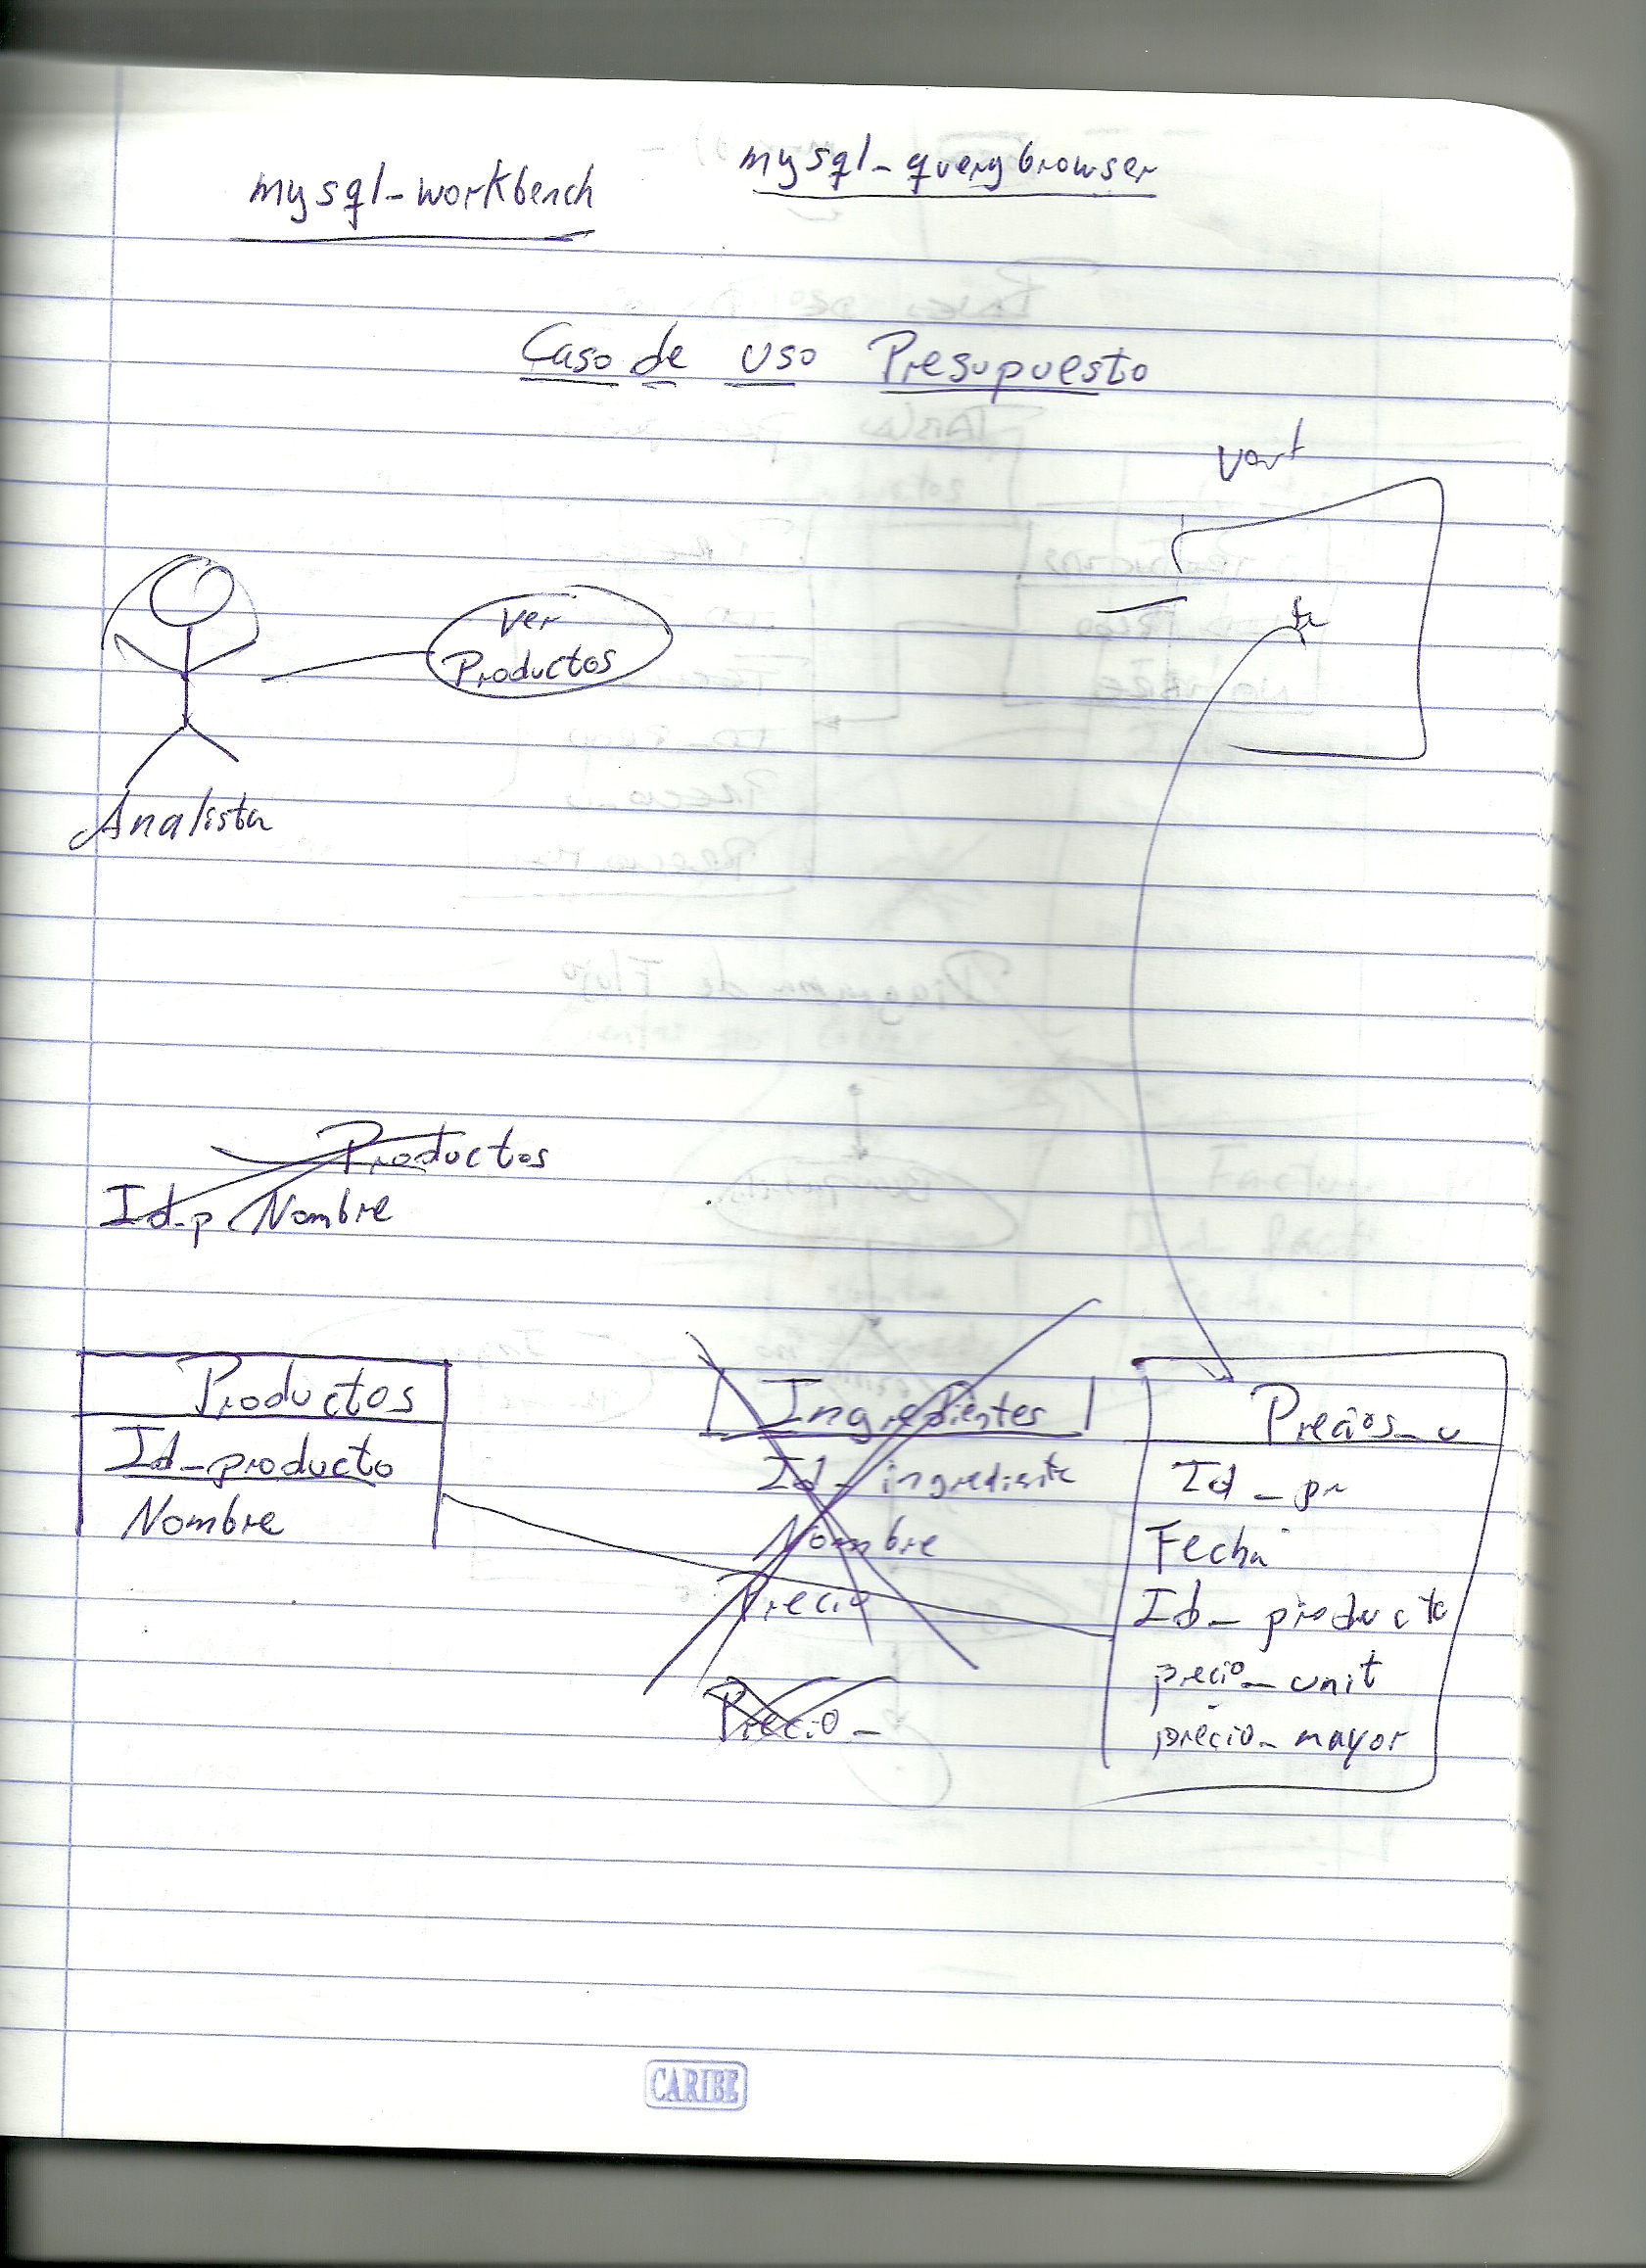 mysql-workbench
mysql-querybrowser
Caso de uso Presupuesto
Ver
Productos
Analista
Productos
Id-p Nombre
Productos
Id-producto
Nombre
Ingredientes
Id-ingrediente
Nombre
Precio
Precio_
Precios_u
Id_pr
Fecha
Id_producto
precio_unit
precio_mayor
CARIBE